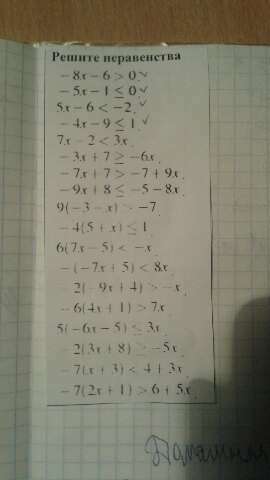 Решите неравенства
-8x-6>0 ✓
-5x-1≤0 ✓
5x-6<-2. ✓
-4x-9≤1. ✓
7x-2<3x.
-3x+7≥-6x.
-7x+7>-7+9x.
-9x+8≤-5-8x.
9(-3-x)>-7.
-4(5+x)≤1.
6(7x-5)<-x.
-(-7x+5)<8x.
2(-9x+4)>-x.
-6(4x+1)>7x.
5(-6x-5)≤3x.
-2(3x+8)≥-5x.
-7(x+3)<4+3x.
-7(2x+1)>6+5x.